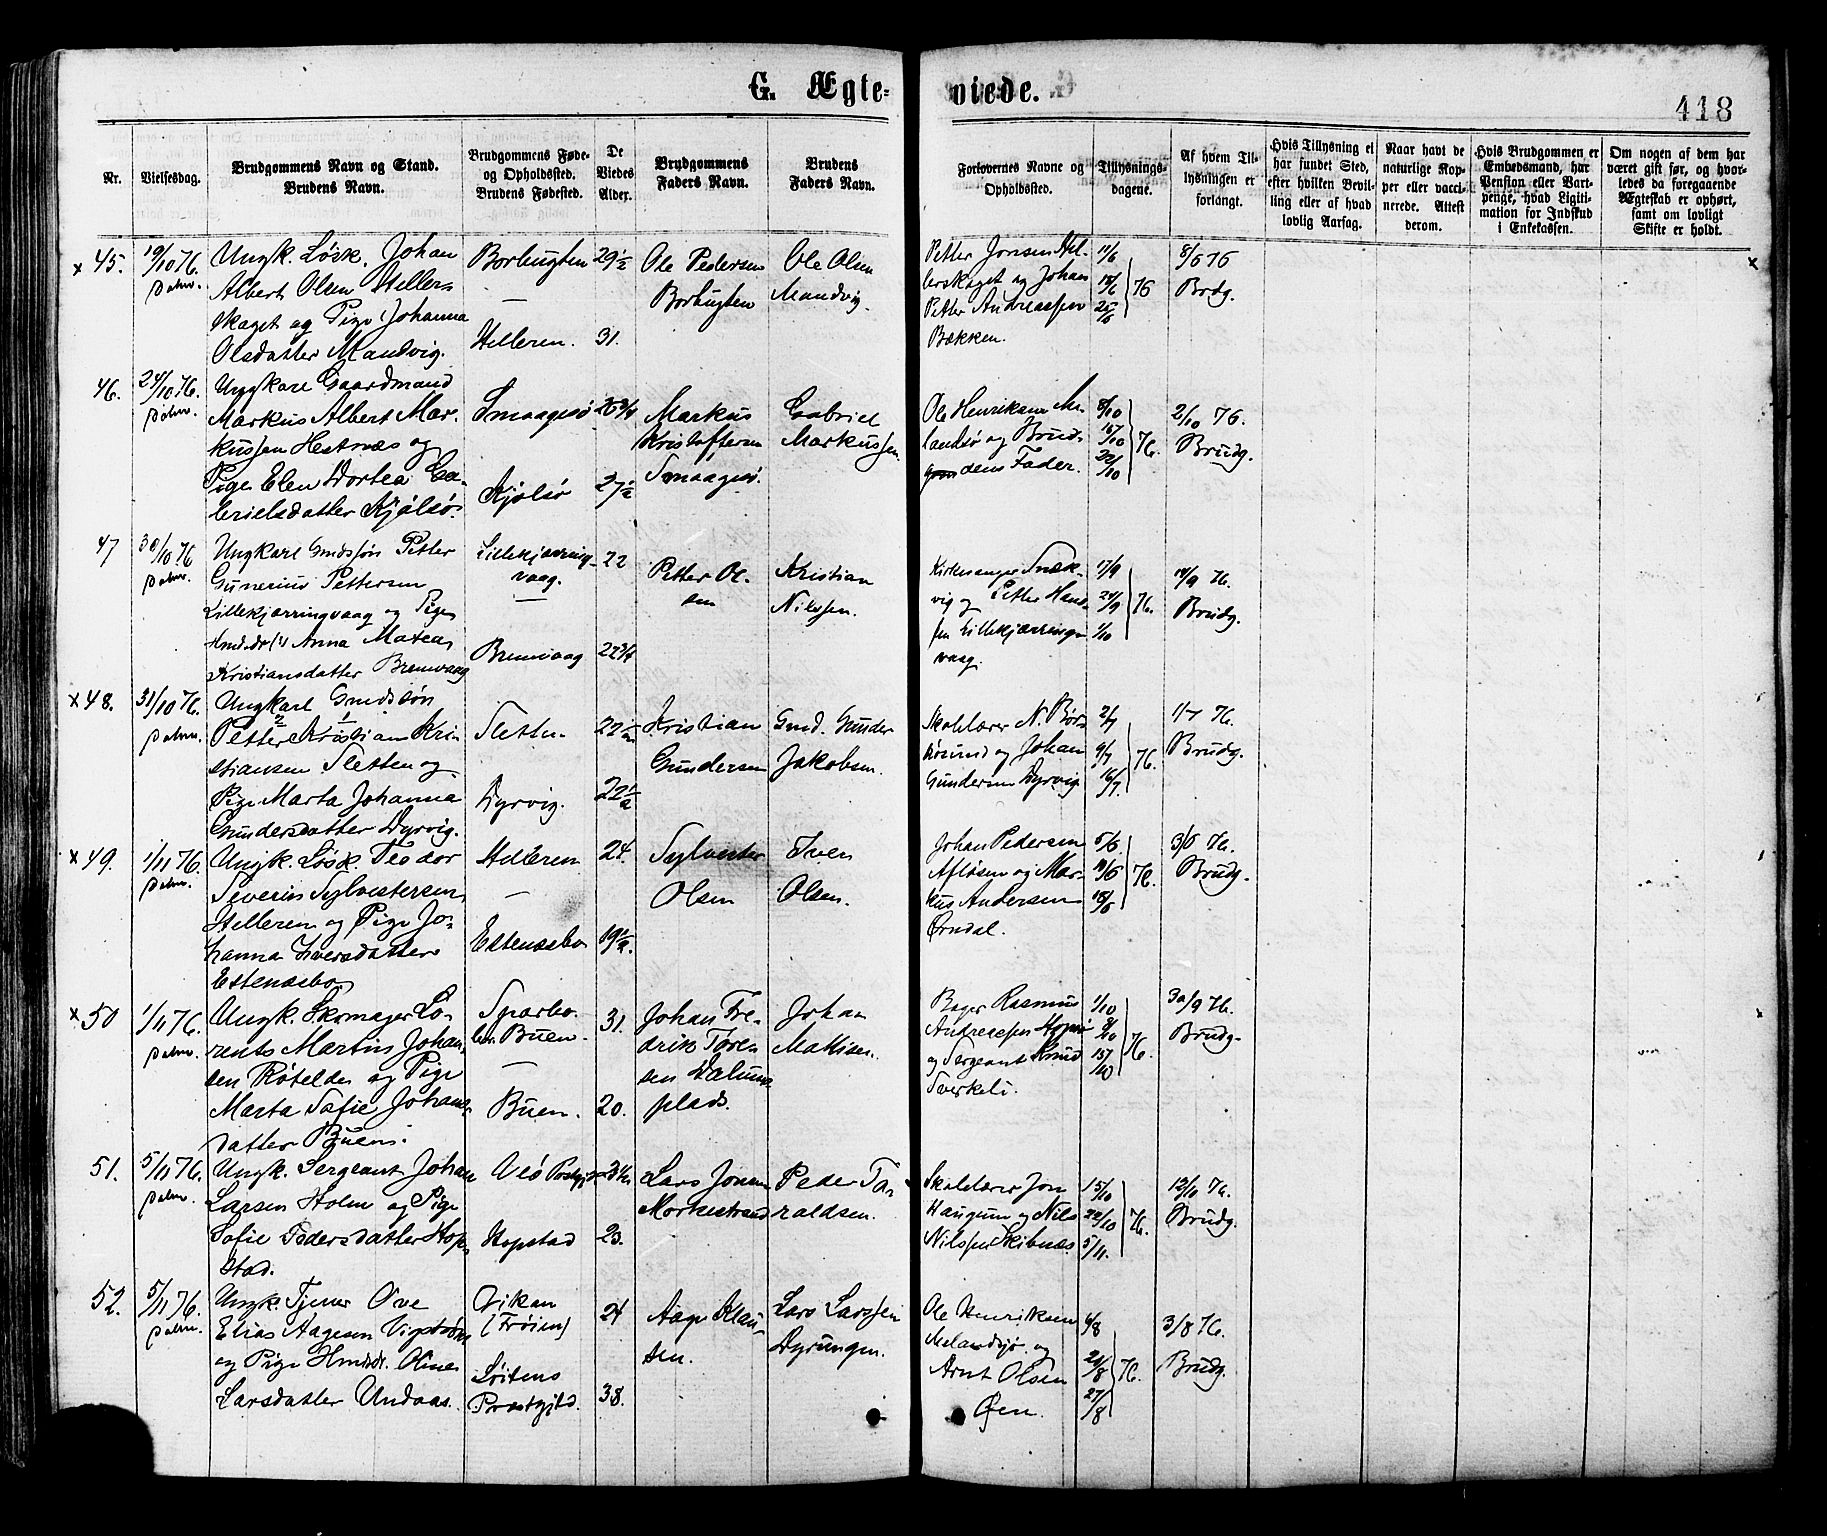 G. Ægteviede.
418
Nr.
Vielsesdag.
Brudgommens Navn og Stand.
Brudens Navn.
Brudgommens Føde-
og Opholdssted.
Brudens Fødested.
De
Viedes
Alder.
Brudgommens
Faders Navn.
Brudens
Faders Navn.
Forlovernes Navne og
Opholdssted.
Tillysnings-
dagene.
Af hvem Til-
lysningen er
forlangt.
Hvis Tillysning ei
har fundet Sted,
efter hvilken Bevil-
ling eller af hvad
lovlig Aarsag.
Naar havt de
naturlige Kop-
per eller vacci-
nerede. Attest
derom.
Hvis Brudgommen er
Embedsmand, har
Pension eller Vart-
penge, hvad Ligiti-
mation for Indskud
i Enkekassen.
Om nogen af dem har
været gift før, og hvor-
ledes da foregaaende
Ægteskab er ophørt,
samt om lovligt
Skifte er holdt.
x 45.
19/10 76.
Ungk. Løsk. Johan
Albert Olsen Hellers
skaget og Pige Johanna
Olsdatter Mandvig.
Borhugten
—
Helleren.
29 1/2
31.
Ole Pedersen
Borhugten
Ole Olsen
Mandvig.
Petter Jonsen Hel-
lerskaget og Johan
Petter Andreassen
Bækken.
11/6
18/6
25/6
76
8/6 76
Brdg.
x
46.
24/10 76.
Ungkarl Gaardmand
Markus Albert Mar-
kussen Hestnæs og
Pige Elen Dortea Ga-
brielsdatter Kjølsø.
Smaagesø
Kjølsø
25 3/4
27 1/2
Markus
Kristoffersen
Smaagesø.
Gabriel
Markussen.
Ole Henriksen Me-
landsø og Brud-
gom dens Fader.
8/10
15/10
22/10
76.
2/10 76.
Brudg.
47
30/10 76
Ungkarl Gmdssøn Petter
Gunerius Pettersen
Lillekjærringvaag og Pige
Hmdsdr (?) Anna Matea
Kristiansdatter Bremvaag
Lillekjærring-
vaag.
—
Bremvaag
22
22 3/4
Petter Ol-
sen
Kristian
Nilssen.
Kirkesanger Snæk-
vig og Petter Han-
sen Lillekjærring-
vaag.
17/9
24/9
1/10
76.
14/9 76.
Brudg.
x 48.
31/10 76.
Ungkarl Gmdssøn
Petter Kristian Kri-
stiansen Sletten og
Pige Marta Johanna
Gundersdatter Dyrvig.
Sletten
Dyrvig.
22 1/2
22 1/2
Kristian
Gundersen
Gmd. Gunder
Jakobsen.
Skolelærer N. Børø-
søsund og Johan
Gundersen Dyrvig.
2/7
9/7
16/7
76.
1/7 76.
Brudg.
x 49.
1/11 76.
Ungk. Løsk Teodor
Severin Sylvestersen
Helleren og Pige Jo-
hanna Iversdatter
Estensebo
Helleren
—
Estensebo
24.
19 1/2.
Sylvester
Olsen
Iver
Olsen.
Johan Pedersen
Afløsen og Mar-
kus Andersen
Ørndal.
5/6
18/6
76.
3/6 76.
Brudg.
x 50
1/11 76.
Ungk. Skomager Lo-
rents Martin Johan-
sen Røtelde og Pige
Marta Sofie Johans-
datter Buen.
Buen.
—
Buen.
31.
20.
Johan Fre-
drik Tøre-
sen Dalum-
plads.
Johan
Matisen.
Bager Rasmus
Andreassen Hopsø
og Sergeant Knud
Sverkeli.
1/10
8/10
15/10
76.
30/9 76.
Brudg.
51.
5/11 76.
Ungk. Sergeant Johan
Larsen Holm og Pige
Sofie Pedersdatter Hop-
stad.
Veø
Hopstad
23.
Lars Jonsen
Morkestrand
Peder Ta-
raldsen.
Skolelærer Jon
Haugum og Nils
Nilssen Skibnæs
15/10
22/10
5/11.
76.
12/10 76.
Brudg.
52.
5/11 76.
Ungk. Tjener Ove
Elias Aagesen Vigstrøm
og Pige Hmdsdr. Oline
Larsdatter Undaas.
Vikan
(Frøien)
Præstgjeld.
24
38.
Aage Klau-
sen.
Lars Larssen
Dyrungen.
Ole Henriksen
Melandsjø og
Arnt Olsen
Øien.
6/8
20/8
27/8
76.
3/8 76.
Brudg.